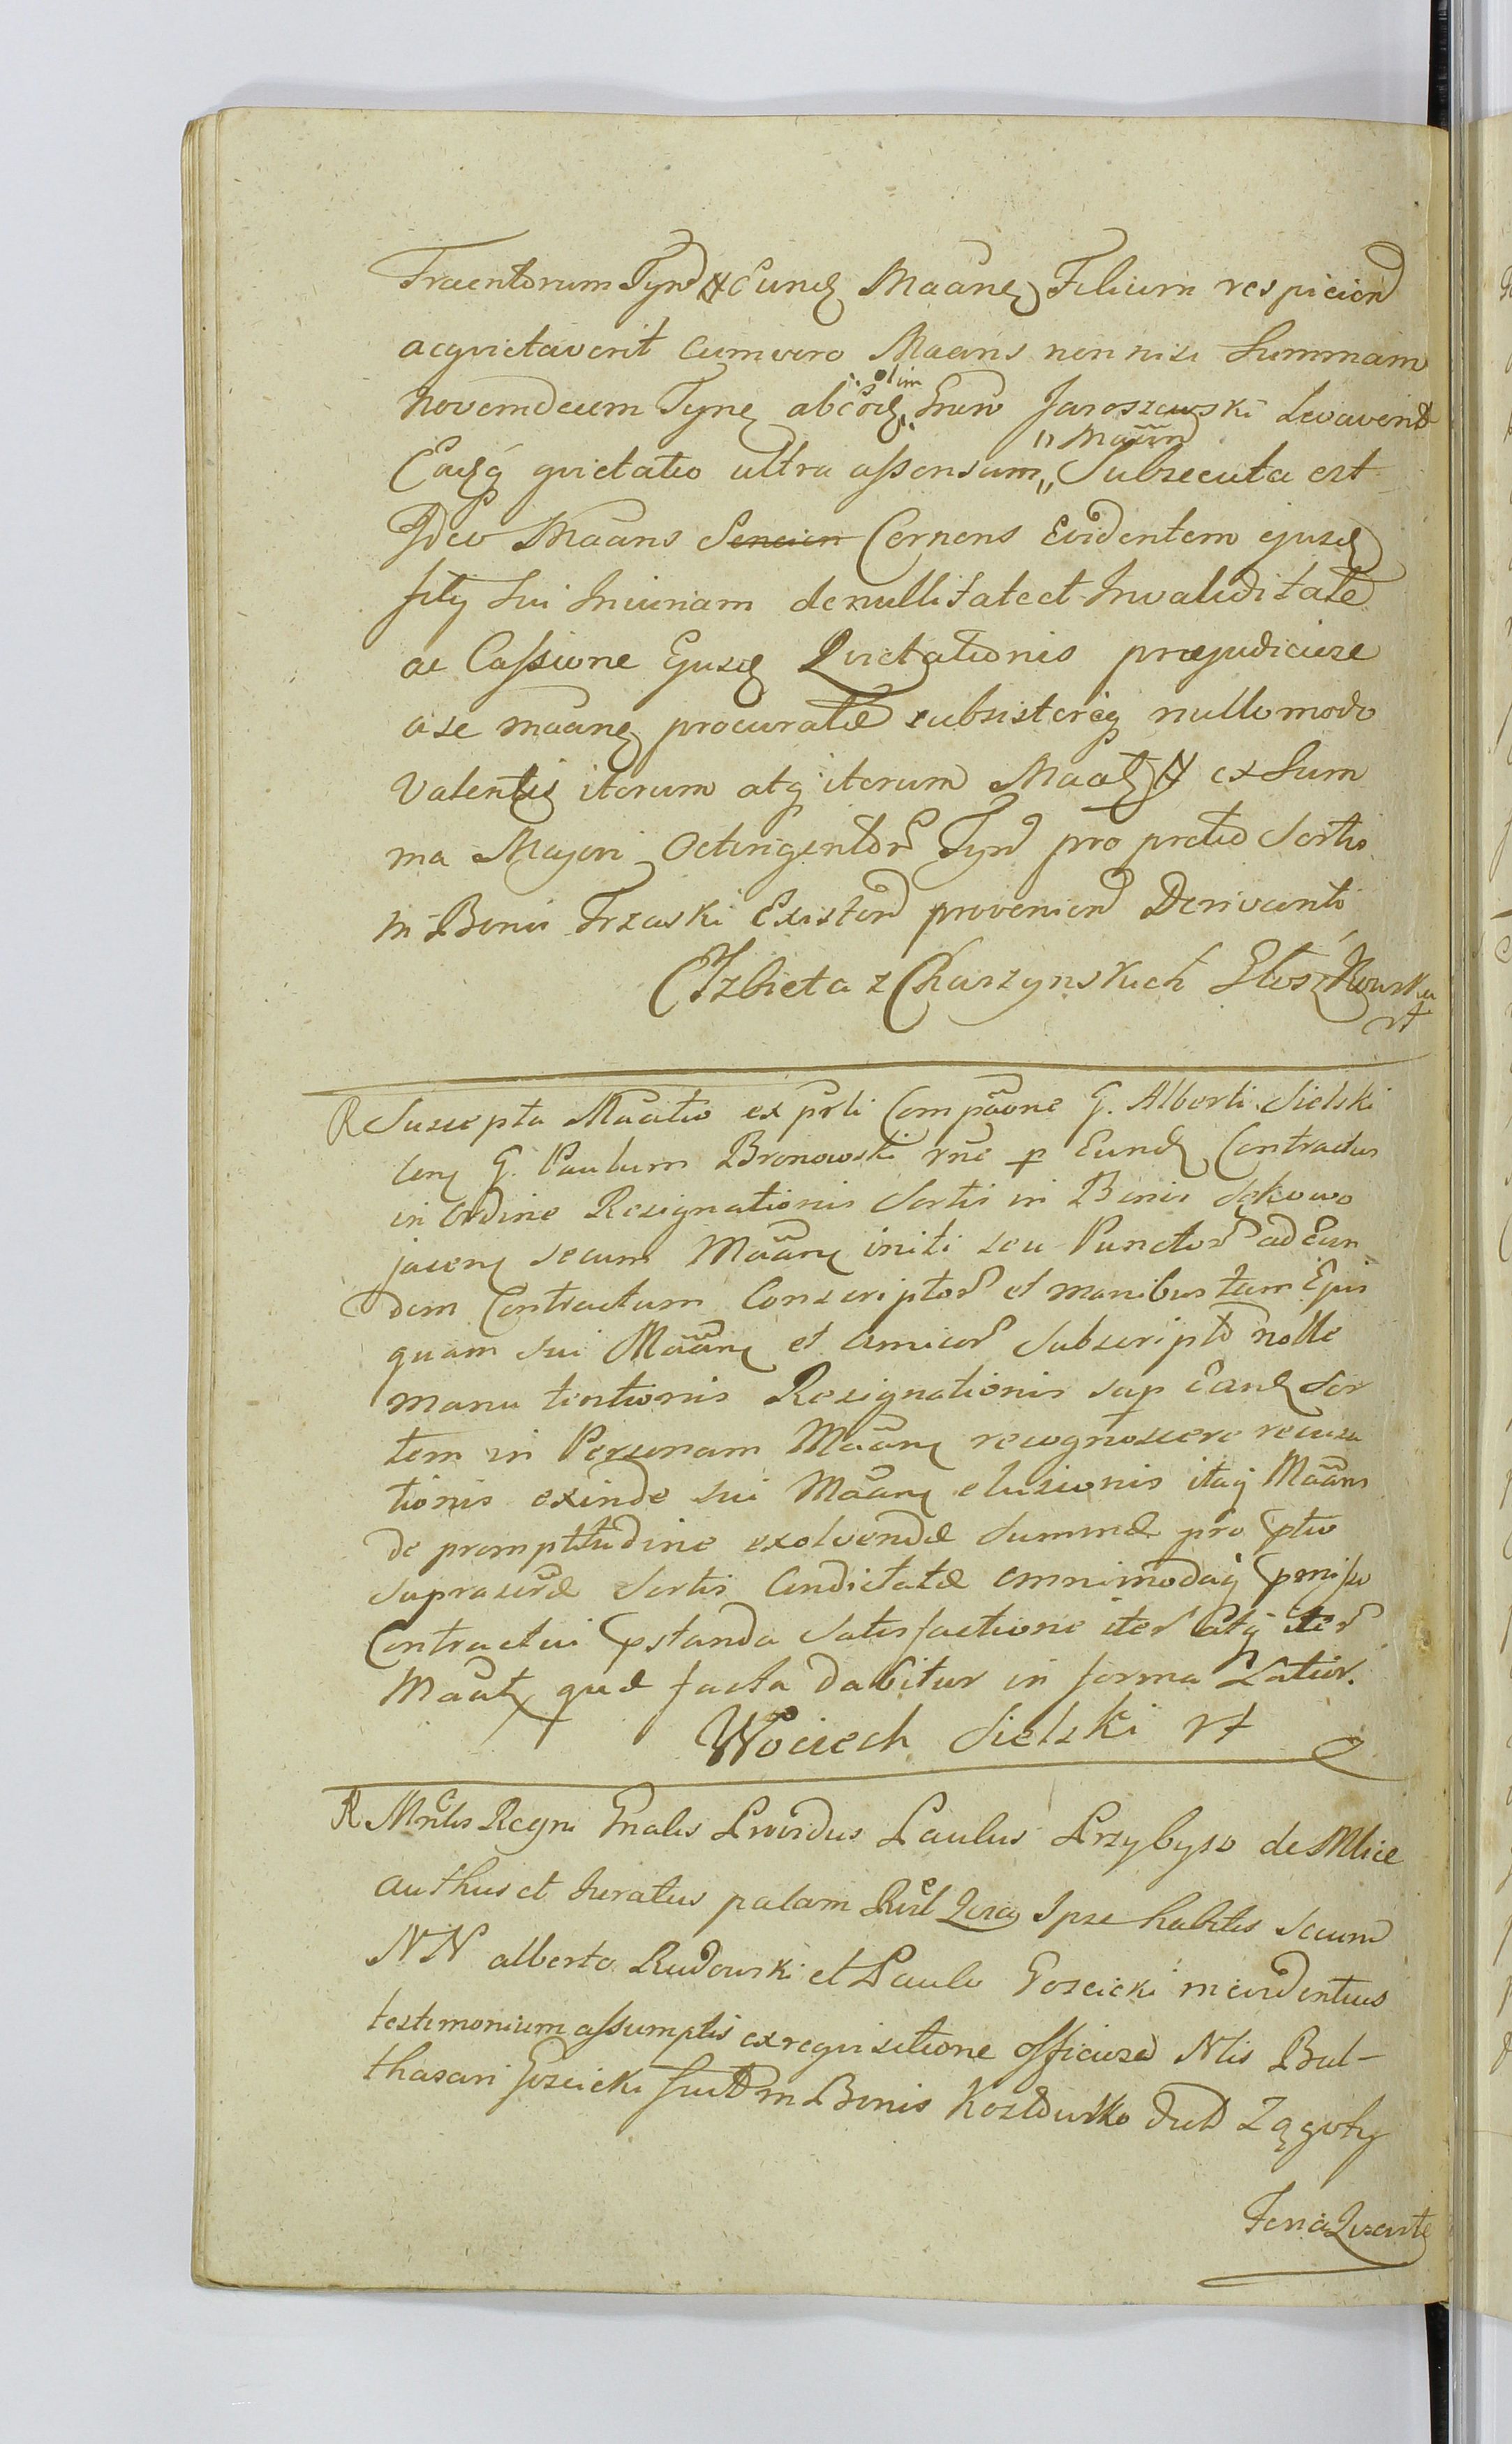 Traentorum Tyn̄ Eund Maāne Filium respicien
acquietaverit cum vero Maans non nisi Summam
olim
Novemdecem Tyne ab eod Jaroszewski Levaverit
Maān
Eadq quietatio ultra assensum Subsecuta est
Ideo Maāns Cernens Evidentem ejusd
filij sui Iniuriam de nullitate et Invaliditate
ac Cassione Ejusd Quietationis præjudiciose
a se māane procuratæ subsistereq nullo modo
Valentis iterum atq iterum Maat ex Sum
ma Majori Octingentor Tyn pro pretio Sortis
in Bonis Trzaski Existen provenien Derivanti
Elzbieta z Charzynskich
R Suscepta Maātio ex prli Compaōne G. Alberti Sielski
G. Paulum Bronowski rne p Eund Contractus
in ordine Resignationis Sortis in Bonis Sękowo
jacen secum Māane initi seu Punctor ad Eun
dem Contractum Conscriptor et manibus tam Ejus
quam sui Māane et amicor Subscript nolle
manu tentionis Resignationis sup Eand Sor
tem in Personam Māane recognoscere recusa
tionis exinde sui Māane elusionis itaq Māans
de promptitudine exolvendæ Summæ pro ptio
suprascræ Sortis Condictatæ omnimodaq pmisso
Contractui pstanda Satisfactione iter atq iter
Māat quæ facta dabitur in forma Latior.
Woiciech Sielski
R Mrlis Regni Gnalis Providus Paulus Przybysz de
authus et Iuratus palam Ipse habitis secum
NN alberto Rudowski et Paulo Goscicki in evidentius
testimonium assumptis ex requisitione officiosa Nlis Bal-
thasari Goscicki fuit in Bonis dict
Feria Quarta